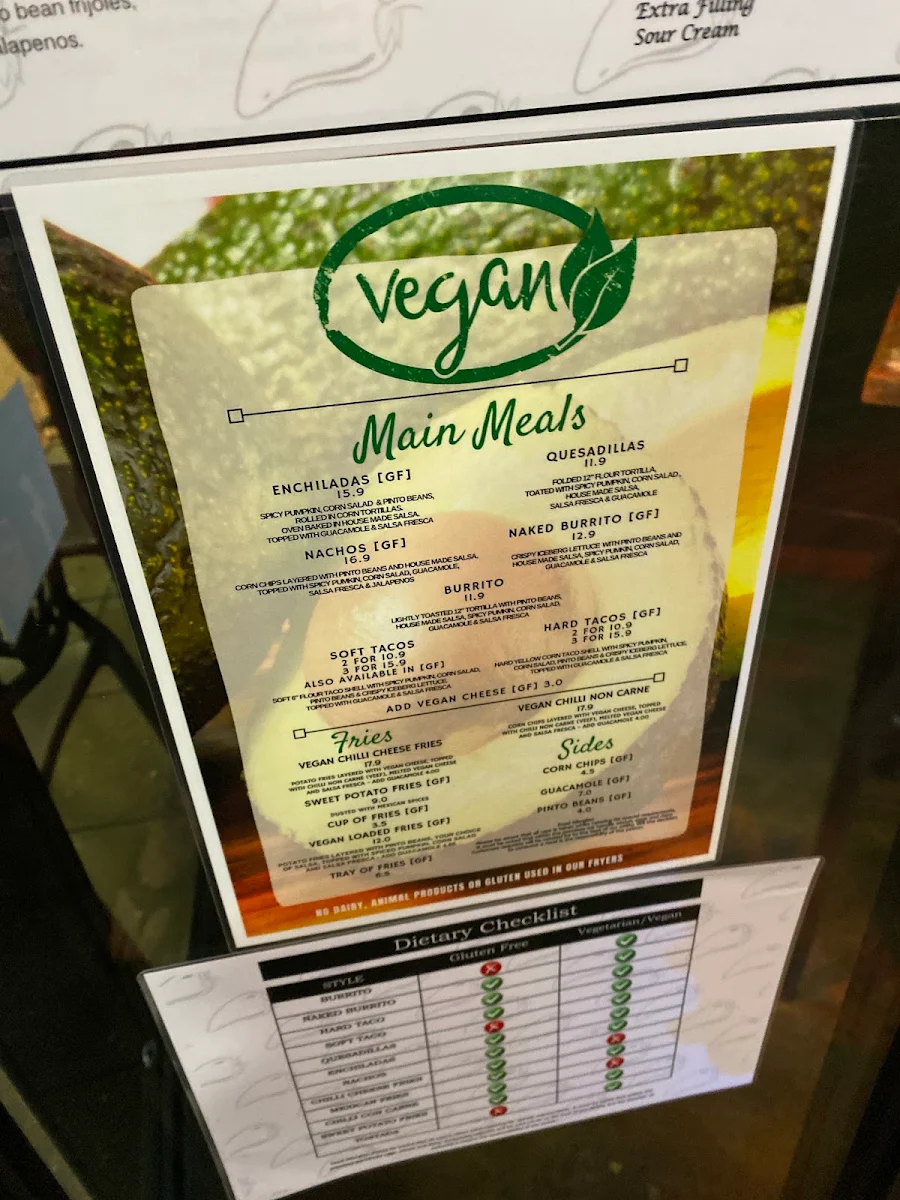 bean frijoles,
alapenos.
Extra Filling
Sour Cream
vegan
Main Meals
ENCHILADAS [GF]
15.9
SPICY PUMPKIN, CORN SALAD & PINTO BEANS,
ROLLED IN CORN TORTILLAS.
OVEN BAKED IN HOUSE MADE SALSA.
TOPPED WITH GUACAMOLE & SALSA FRESCA
QUESADILLAS
11.9
FOLDED 12" FLOUR TORTILLA,
TOATED WITH SPICY PUMPKIN, CORN SALAD,
HOUSE MADE SALSA,
SALSA FRESCA & GUACAMOLE
NACHOS [GF]
16.9
CORN CHIPS LAYERED WITH PINTO BEANS AND HOUSE MADE SALSA.
TOPPED WITH SPICY PUMKIN, CORN SALAD, GUACAMOLE,
SALSA FRESCA & JALAPENOS
NAKED BURRITO [GF]
12.9
CRISPY ICEBERG LETTUCE WITH PINTO BEANS AND
HOUSE MADE SALSA, SPICY PUMKIN, CORN SALAD,
GUACAMOLE & SALSA FRESCA
BURRITO
11.9
LIGHTLY TOASTED 12" TORTILLA WITH PINTO BEANS,
HOUSE MADE SALSA, SPICY PUMKIN, CORN SALAD,
GUACAMOLE & SALSA FRESCA
SOFT TACOS
2 FOR 10.9
3 FOR 15.9
ALSO AVAILABLE IN [GF]
SOFT 6" FLOUR TACO SHELL WITH SPICY PUMKIN, CORN SALAD,
PINTO BEANS & CRISPY ICEBERG LETTUCE.
TOPPED WITH GUACAMOLE & SALSA FRESCA
HARD TACOS [GF]
2 FOR 10.9
3 FOR 15.9
HARD YELLOW CORN TACO SHELL WITH SPICY PUMKIN,
CORN SALAD, PINTO BEANS & CRISPY ICEBERG LETTUCE.
TOPPED WITH GUACAMOLE & SALSA FRESCA
ADD VEGAN CHEESE [GF] 3.0
Fries
VEGAN CHILLI CHEESE FRIES
17.9
POTATO FRIES LAYERED WITH VEGAN CHEESE, TOPPED
WITH CHILLI NON CARNE (VEEF), MELTED VEGAN CHEESE
AND SALSA FRESCA - ADD GUACAMOLE 4.00
SWEET POTATO FRIES [GF]
9.0
DUSTED WITH MEXICAN SPICES
CUP OF FRIES [GF]
3.5
VEGAN LOADED FRIES [GF]
12.0
POTATO FRIES LAYERED WITH PINTO BEANS, YOUR CHOICE
OF SALSA, TOPPED WITH SPICED PUMPKIN, CORN SALAD
AND SALSA FRESCA - ADD GUACAMOLE
TRAY OF FRIES [GF]
6.5
VEGAN CHILLI NON CARNE
17.9
CORN CHIPS LAYERED WITH VEGAN CHEESE, TOPPED
WITH CHILLI NON CARNE (VEEF), MELTED VEGAN CHEESE
AND SALSA FRESCA - ADD GUACAMOLE 4.00
Sides
CORN CHIPS [GF]
4.5
GUACAMOLE [GF]
7.0
PINTO BEANS [GF]
4.0
NO DAIRY, ANIMAL PRODUCTS OR GLUTEN USED IN OUR FRYERS
Dietary Checklist
STYLE Gluten Free Vegetarian/Vegan
BURRITO
NAKED BURRITO
HARD TACO
SOFT TACO
QUESADILLAS
ENCHILADAS
NACHOS
CHILLI CHEESE FRIES
MEXICAN FRIES
CHILLI CON CARNE
SWEET POTATO FRIES
TOSTADA